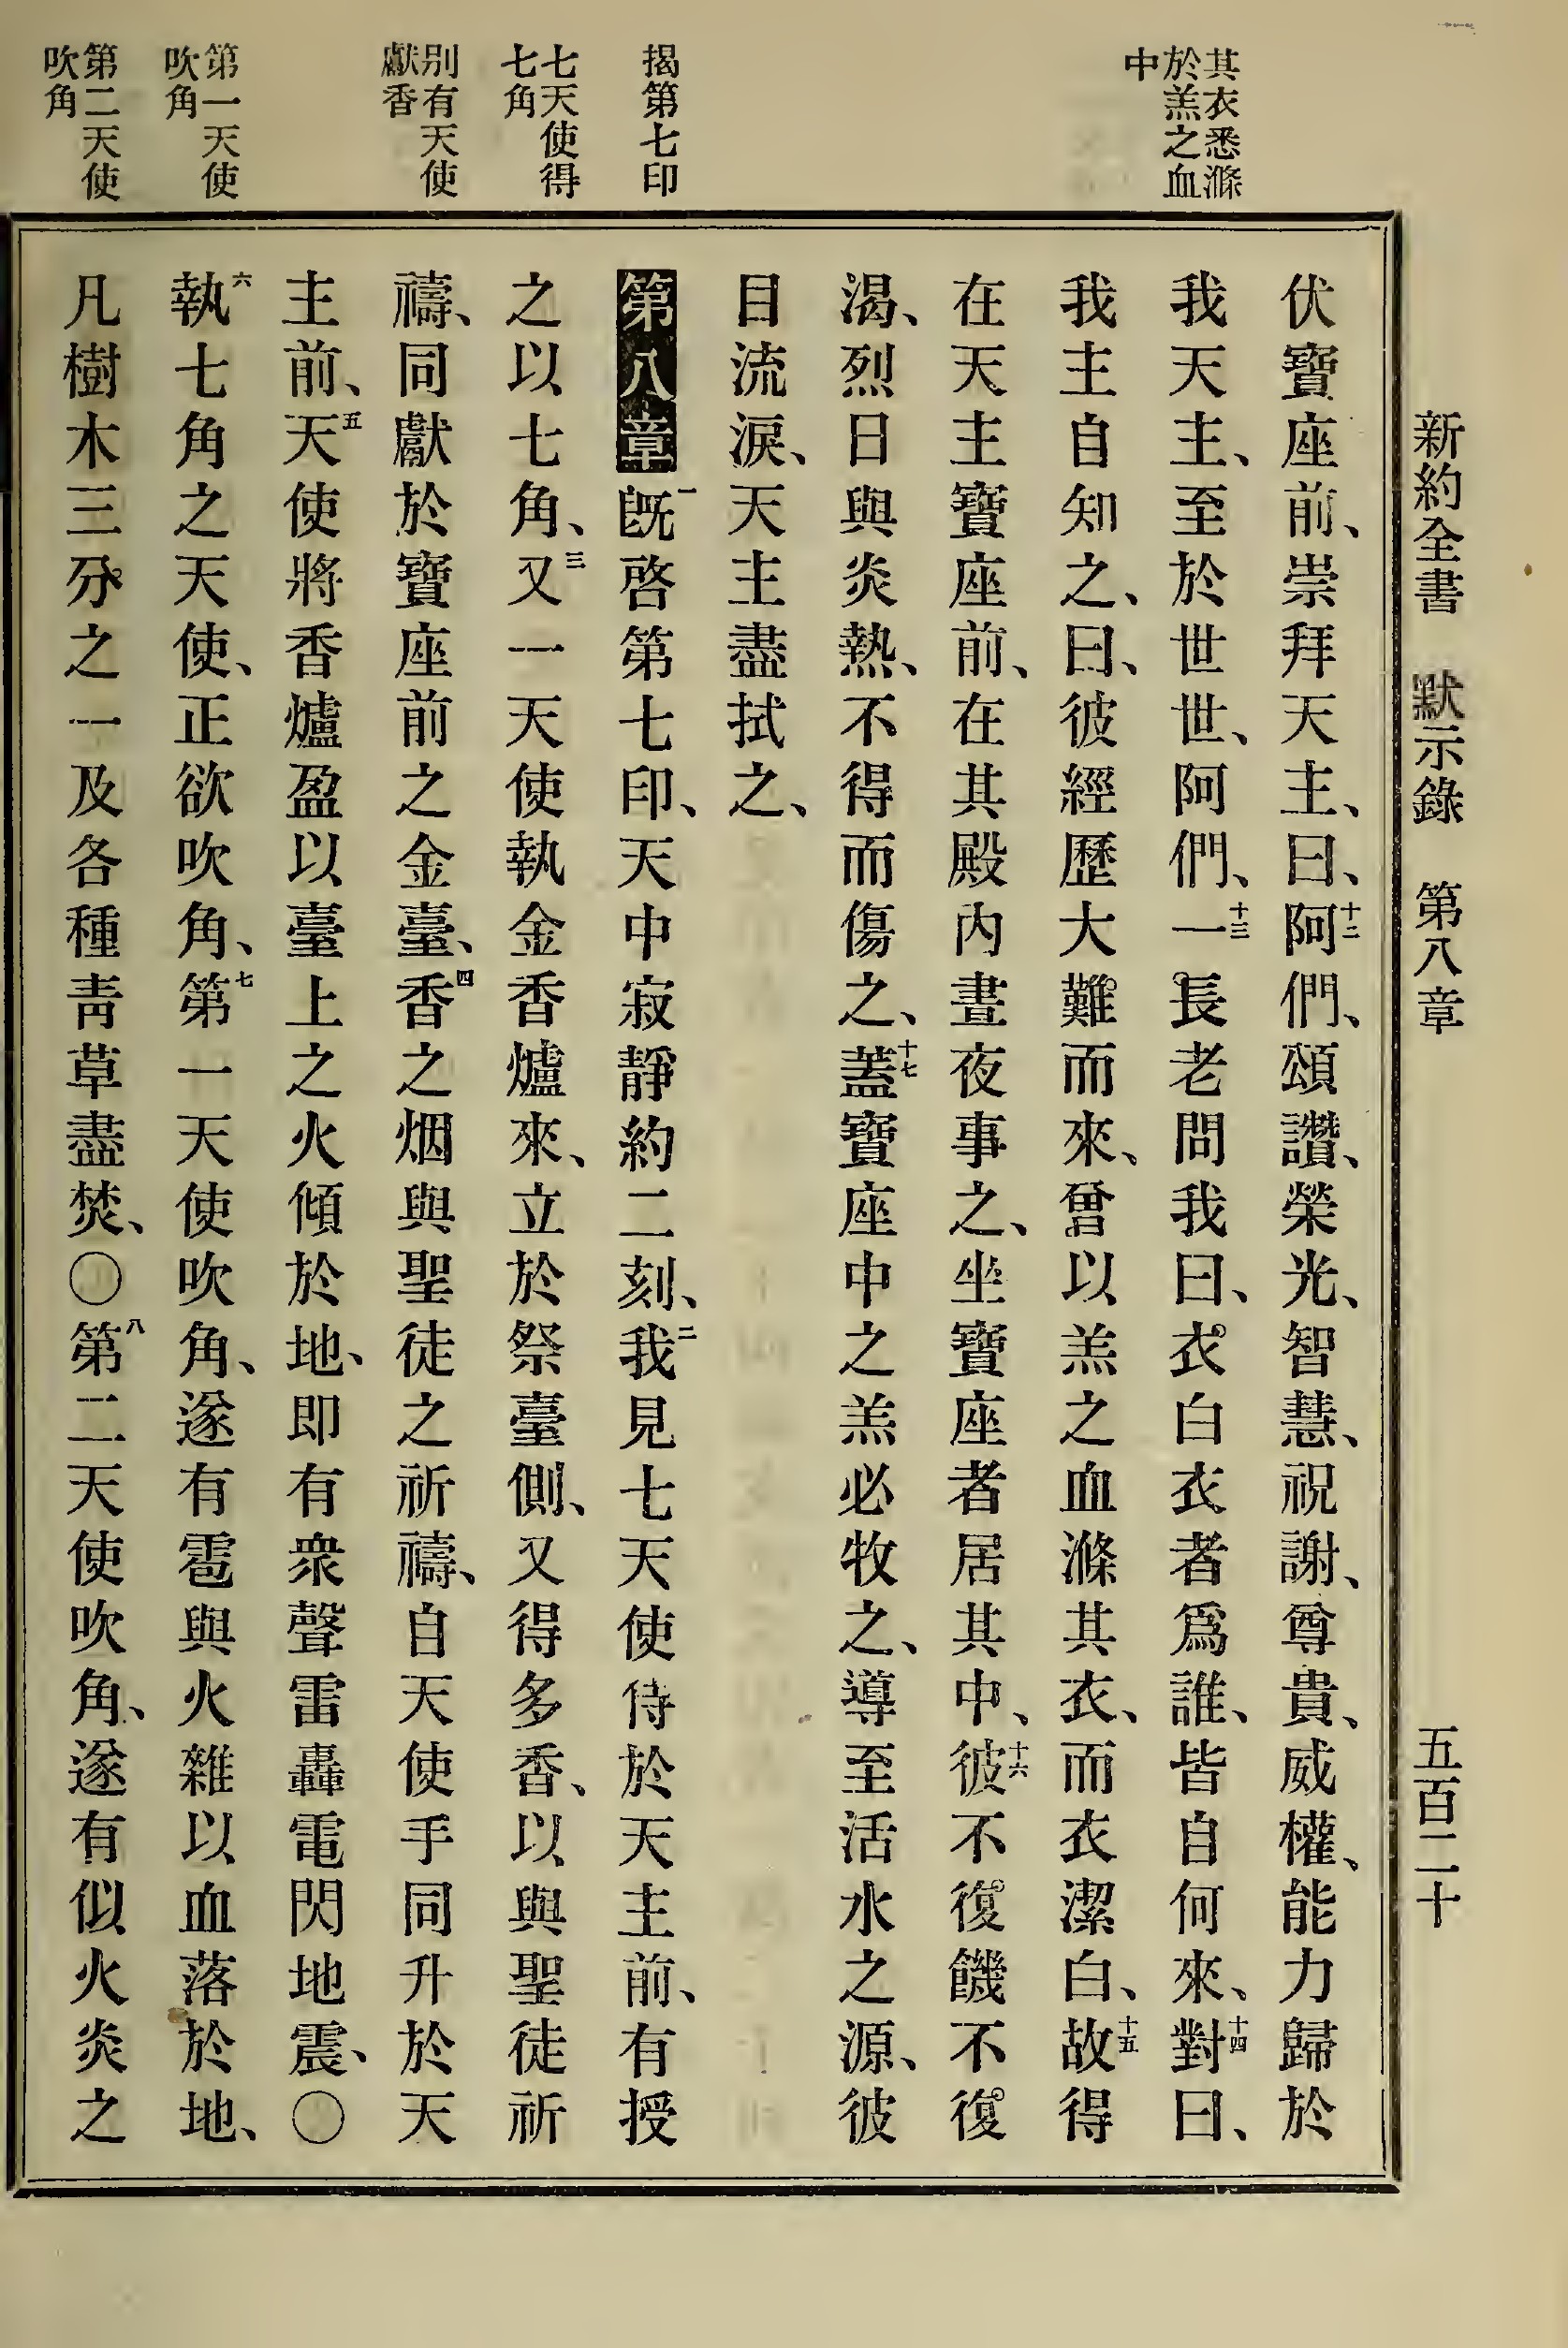 新約全書 默示錄 第八章 五百二十
其衣悉滌
於羔之血
中
揭第七印
七天使得
七角
别有天使
獻香
第一天使
吹角
第二天使
吹角
伏寶座前、崇拜天主、曰、十二阿們、頌讚、榮光、智慧、祝謝、尊貴、威權、能力歸於
我天主、至於世世、阿們、十三一長老問我曰、衣白衣者爲誰、皆自何來、十四對曰、
我主自知之、曰、彼經歷大難而來、曾以羔之血滌其衣、而衣潔白、十五故得
在天主寶座前、在其殿內晝夜事之、坐寶座者居其中、十六彼不復饑不復
渴、烈日與炎熱、不得而傷之、十七蓋寶座中之羔必牧之、導至活水之源、彼
目流淚、天主盡拭之、
第八章 一旣啓第七印、天中寂靜約二刻、二我見七天使侍於天主前、有授
之以七角、三又一天使執金香爐來、立於祭臺側、又得多香、以與聖徒祈
禱、同獻於寶座前之金臺、四香之烟與聖徒之祈禱、自天使手同升於天
主前、五天使將香爐盈以臺上之火傾於地、即有衆聲雷轟電閃地震、〇
六執七角之天使、正欲吹角、七第一天使吹角、遂有雹與火雜以血落於地、
凡樹木三分之一及各種靑草盡焚、〇八第二天使吹角、遂有似火炎之